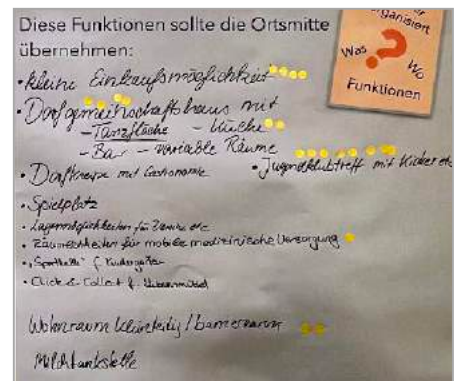 Diese Funktionen sollte die Ortsmitte
übernehmen:
organisiert
Was ? Wo
Funktionen
• kleine Einkaufsmöglichkeit
• Dorfgemeinschaftshaus mit
– Tanzfläche – Küche
– Bar – variable Räume
• Jugendklubtreff mit Kicker etc
• Dorfkneipe mit Gastronomie
• Spielplatz
• Lagermöglichkeiten für Vereine etc
• Räumlichkeiten für mobile medizinische Versorgung
• "Sporthalle" f. Kindergarten
• Click & Collect f.
Wohnraum kleinteilig / barrierearm
Milchtankstelle